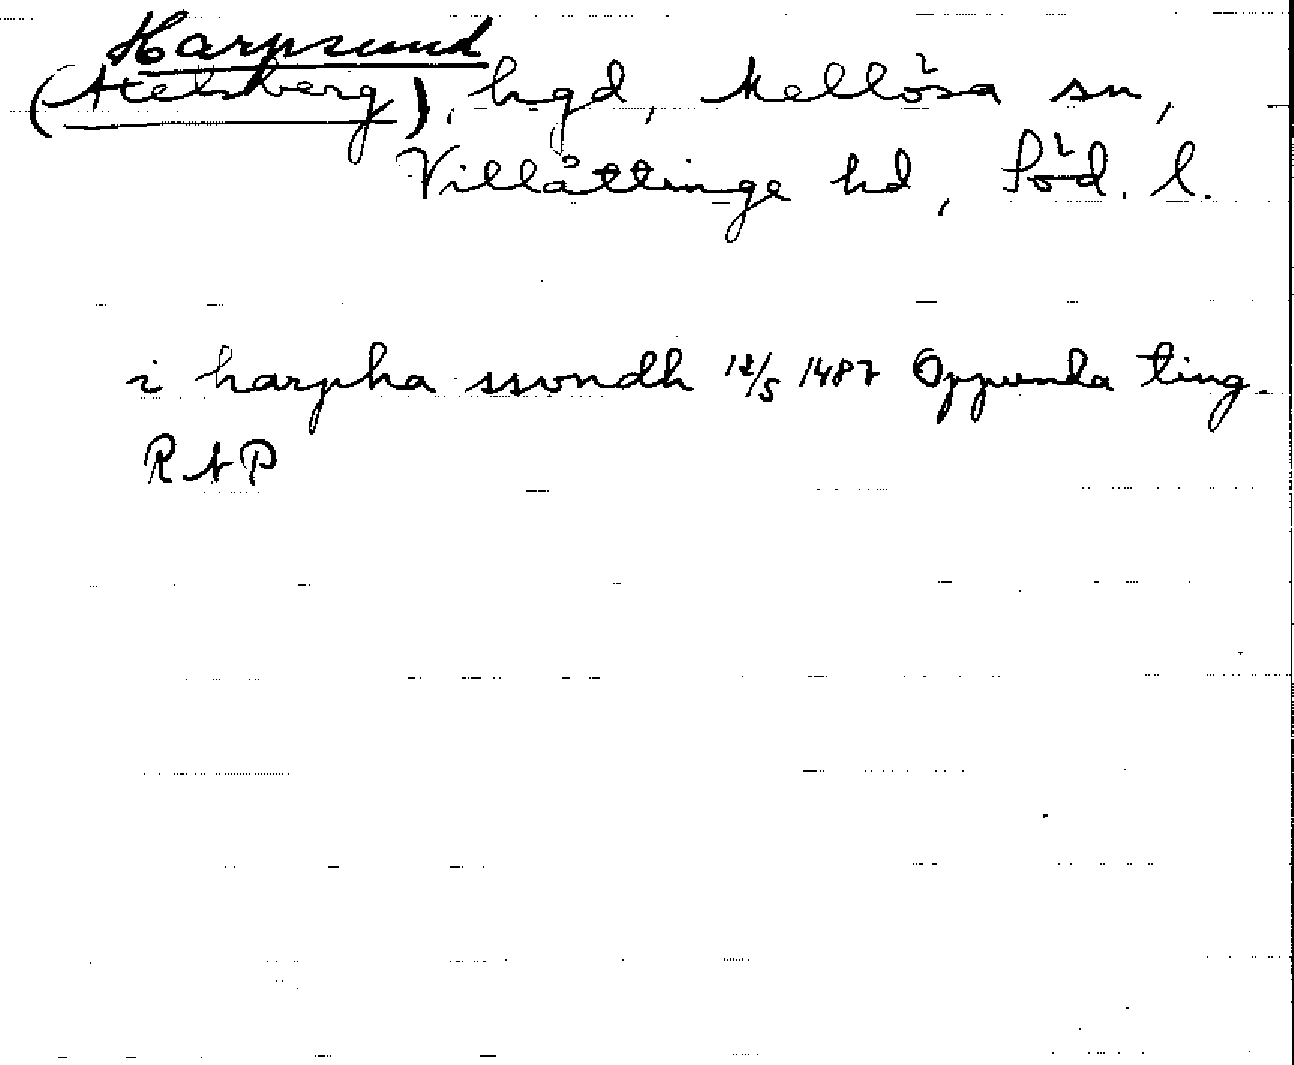 Harpsund
(Adelsberg), hgd, Mellösa sn,
Villåttinge hd, Söd. l.
i harpha ssvndh 12/5 1487 Oppunda ting.
RAP